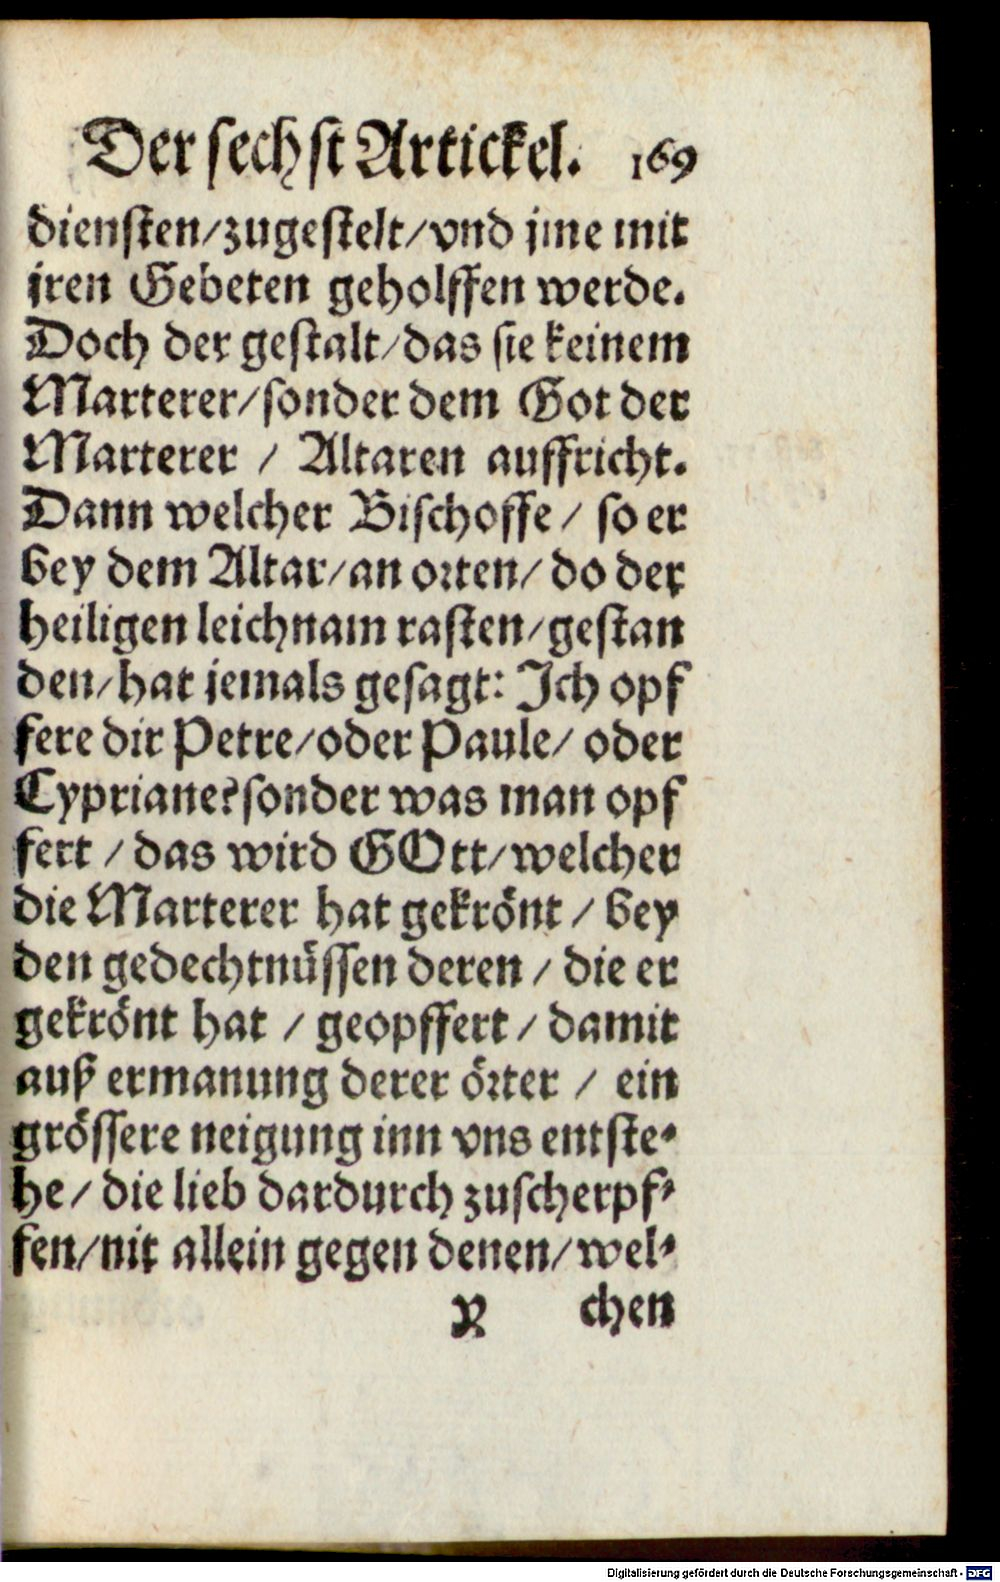 Der sechst Artickel. 169
diensten/zugestelt/vnd jme mit
jren Gebeten geholffen werde.
Doch der gestalt/das sie keinem
Marterer/sonder dem Got der
Marterer / Altaren auffricht.
Dann welcher Bischoffe / so er
bey dem Altar/an orten/do der
heiligen leichnam rasten/gestan
den/hat jemals gesagt: Ich opf
fere dir Petre/oder Paule/ oder
Cypriane? sonder was man opf
fert / das wird GOtt/welcher
die Marterer hat gekrönt / bey
den gedechtnüssen deren / die er
gekrönt hat / geopffert / damit
auß ermanung derer örter / ein
grössere neigung inn vns entste-
he/ die lieb dardurch zuscherpf-
fen/nit allein gegen denen/wel-
Y chen
Digitalisierung gefördert durch die Deutsche Forschungsgemeinschaft - DFG